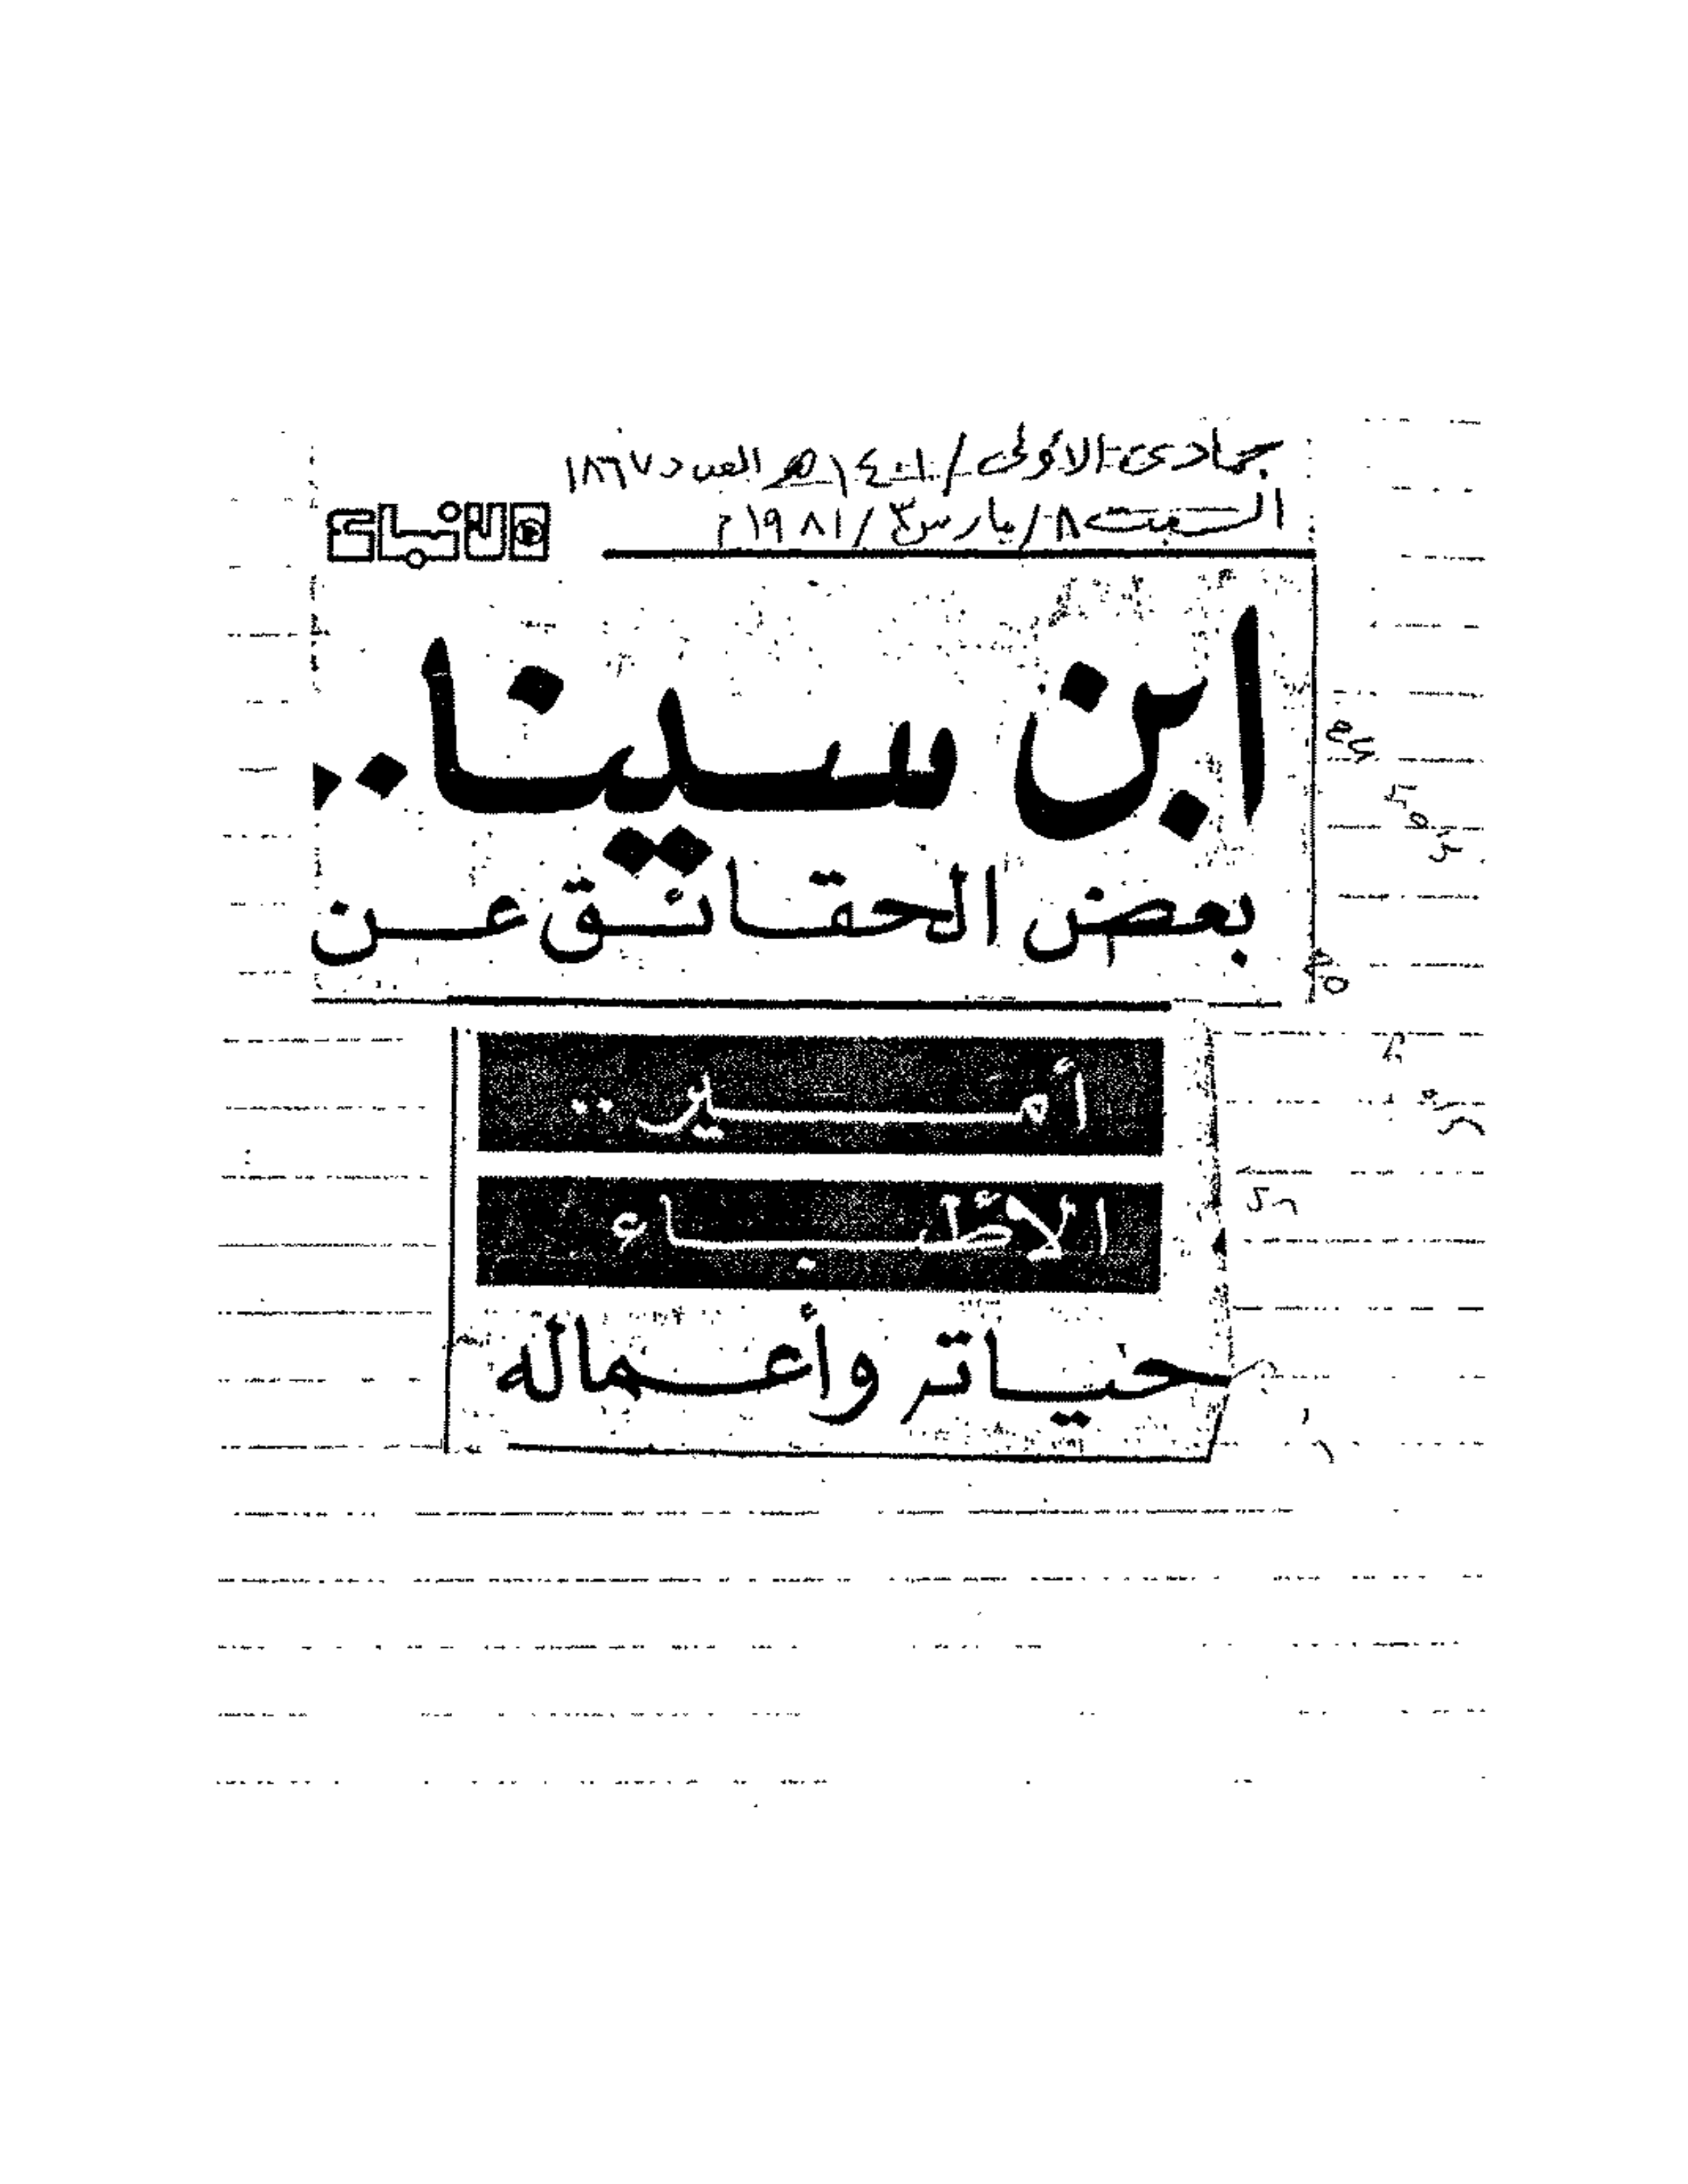 جمادى الأولى / ١٤٠١ هـ العدد ١٨٦٧
السبت ٨ / مارس ٣ / ١٩٨١ م
الأنباء
ابن سينا..
بعض الحقائق عن
أمير ..
الأطباء
حياته وأعماله